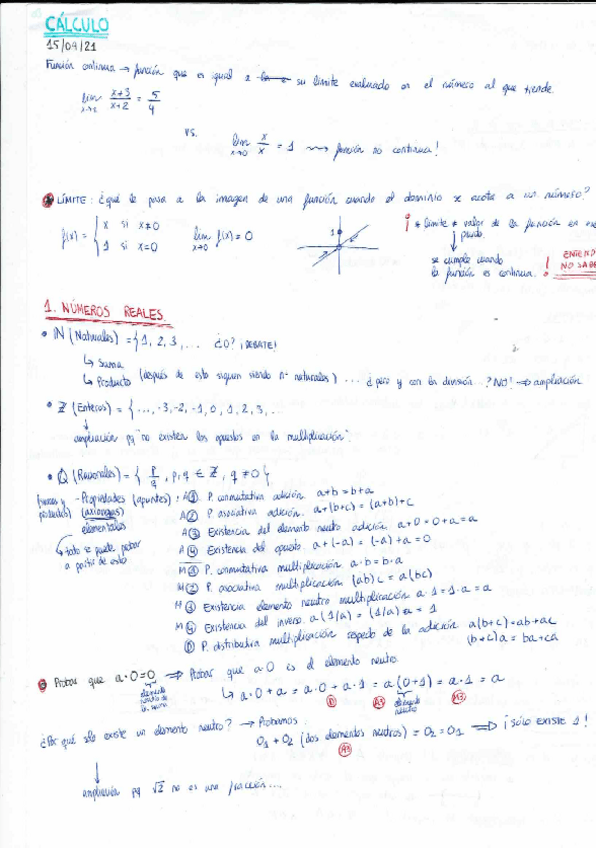 CÁLCULO
15/09/21
Función continua → función que es igual a su límite evaluado en el número al que tiende.
lim x→2 x+3/x+2 = 5/4
vs.
lim x→0 x/x = 1 ⟿ función no continua!
LÍMITE: ¿qué le pasa a la imagen de una función cuando el dominio se acota a un número?
f(x) = { x si x≠0
1 si x=0
lim x→0 f(x) = 0
¡ * límite * valor de la función en
punto.
se cumple cuando
la función es continua.
!
1. NÚMEROS REALES.
• ℕ (Naturales) = {1, 2, 3, ... ¿0? ¡DEBATE!
↳ Suma
↳ Producto (después de esto siguen siendo nº naturales) ... ¿pero y con la división...? NO! ⇒ ampliación
• ℤ (Enteros) = {..., -3, -2, -1, 0, 1, 2, 3, ...
ampliación pq "no existen los opuestos en la multiplicación".
• ℚ (Racionales) = { p/q , p, q ∈ ℤ, q ≠ 0 {
- Propiedades (apuntes): A① P. conmutativa adición. a+b = b+a
(axiomas)
elementales
A② P. asociativa adición. a+(b+c) = (a+b)+c
A③ Existencia del elemento neutro adición. a+0 = 0+a = a
A④ Existencia del opuesto. a+(-a) = (-a)+a = 0
↳ todo se puede probar
a partir de esto
M① P. conmutativa multiplicación a·b = b·a
M② P. asociativa multiplicación (ab)c = a(bc)
M③ Existencia elemento neutro multiplicación a·1 = 1·a = a
M④ Existencia del inverso. a(1/a) = (1/a)a = 1
D P. distributiva multiplicación respecto de la adición a(b+c) = ab+ac
(b+c)a = ba+ca
Probar que a·0=0 ⇒ Probar que a·0 es el elemento neutro.
elemento
neutro de
la suma
↳ a·0 + a = a·0 + a·1 = a(0+1) = a·1 = a
D A3 elemento neutro M3
¿Por qué sólo existe un elemento neutro? → Probamos:
0₁ + 0₂ (dos elementos neutros) = 0₂ = 0₁ ⇒ ¡SÓLO EXISTE 1!
A3
ampliación pq √2 no es una fracción....